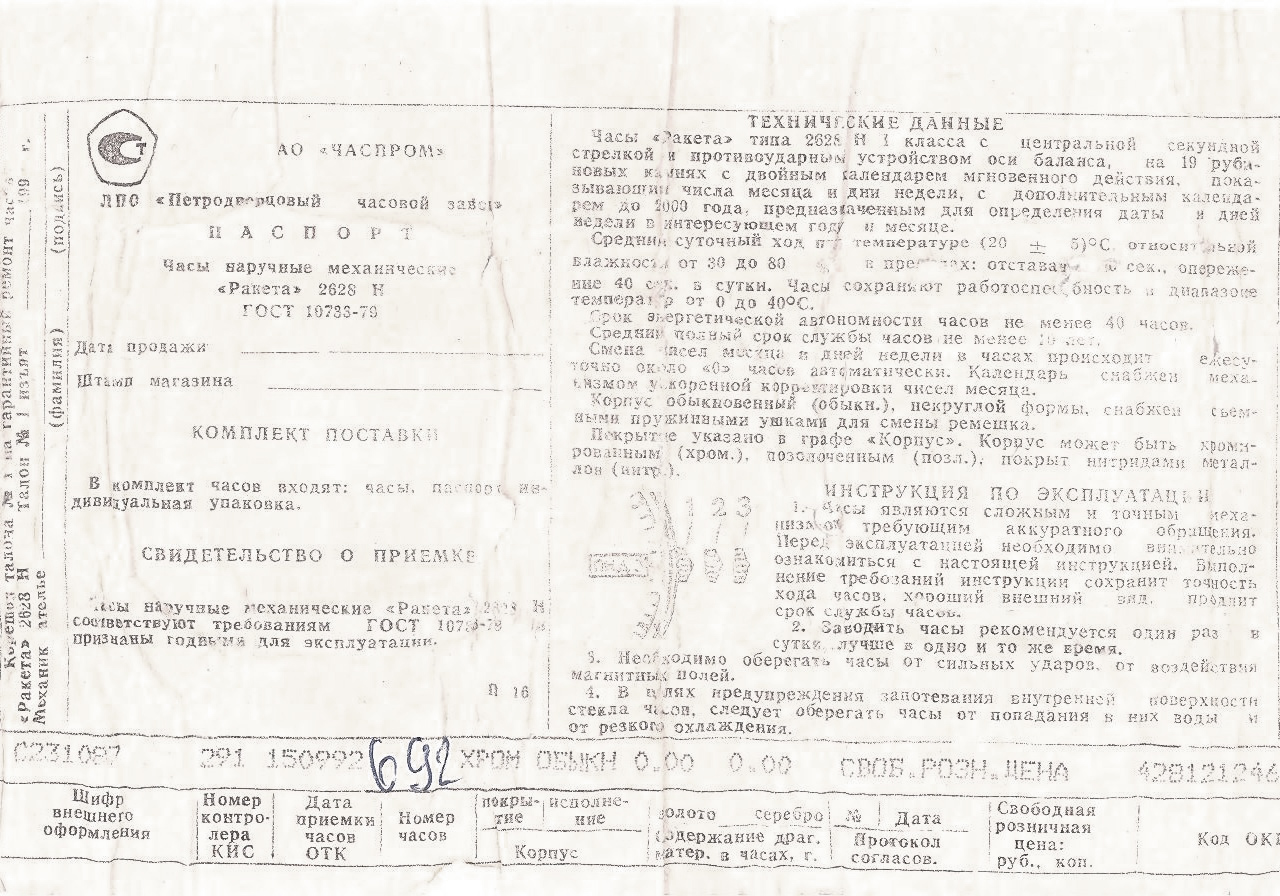 Корешок талона № 1 на гарантийный ремонт часов
«Ракета» 2628 Н талон № 1 изъят 199 г.
Механик ателье (фамилия) (подпись)
СТ
АО «ЧАСПРОМ»
ЛПО «Петродворцовый часовой завод»
ПАСПОРТ
Часы наручные механические
«Ракета» 2628 Н
ГОСТ 10733-79
Дата продажи
Штамп магазина
КОМПЛЕКТ ПОСТАВКИ
В комплект часов входят: часы, паспорт ин-
дивидуальная упаковка.
СВИДЕТЕЛЬСТВО О ПРИЕМКЕ
Часы наручные механические «Ракета» 2628 Н
соответствуют требованиям ГОСТ 10733-79
признаны годными для эксплуатации.
П 16
ТЕХНИЧЕСКИЕ ДАННЫЕ
Часы «Ракета» типа 2628 Н 1 класса с центральной секундной
стрелкой и противоударным устройством оси баланса, на 19 руби-
новых камнях с двойным календарем мгновенного действия, пока-
зывающим числа месяца и дни недели, с дополнительным календа-
рем до 2000 года, предназначенным для определения даты и дней
недели в интересующем году и месяце.
Средний суточный ход при температуре (20 ± 5)°С относительной
влажности от 30 до 80 % в пределах: отставание сек., опереже-
ние 40 сек. в сутки. Часы сохраняют работоспособность в диапазоне
температур от 0 до 40°С.
Срок энергетической автономности часов не менее 40 часов.
Средний полный срок службы часов не менее 10 лет.
Смена чисел месяца и дней недели в часах происходит ежесу-
точно около «0» часов автоматически. Календарь снабжен меха-
низмом ускоренной корректировки чисел месяца.
Корпус обыкновенный (обыкн.), некруглой формы, снабжен съем-
ными пружинными ушками для смены ремешка.
Покрытие указано в графе «Корпус». Корпус может быть хроми-
рованным (хром.), позолоченным (позл.), покрыт нитридами метал-
лов (нитр.).
1 2 3
ИНСТРУКЦИЯ ПО ЭКСПЛУАТАЦИИ
1. Часы являются сложным и точным меха-
низмом требующим аккуратного обращения.
Перед эксплуатацией необходимо внимательно
ознакомиться с настоящей инструкцией. Выпол-
нение требований инструкции сохранит точность
хода часов, хороший внешний вид, продлит
срок службы часов.
2. Заводить часы рекомендуется один раз в
сутки лучше в одно и то же время.
3. Необходимо оберегать часы от сильных ударов, от воздействия
магнитных полей.
4. В целях предупреждения запотевания внутренней поверхности
стекла часов, следует оберегать часы от попадания в них воды и
от резкого охлаждения.
С231087 291 150992 692 ХРОМ ОБЫКН 0.00 0.00 СВОБ.РОЗН.ЦЕНА 428121246
Шифр
внешнего
оформления
Номер
контро-
лера
КИС
Дата
приемки
часов
ОТК
Номер
часов
покры-
тие
исполне-
ние
Корпус
золото серебро
содержание драг.
матер. в часах, г.
№ Дата
Протокол
согласов.
Свободная
розничная
цена:
руб., коп.
Код ОКП